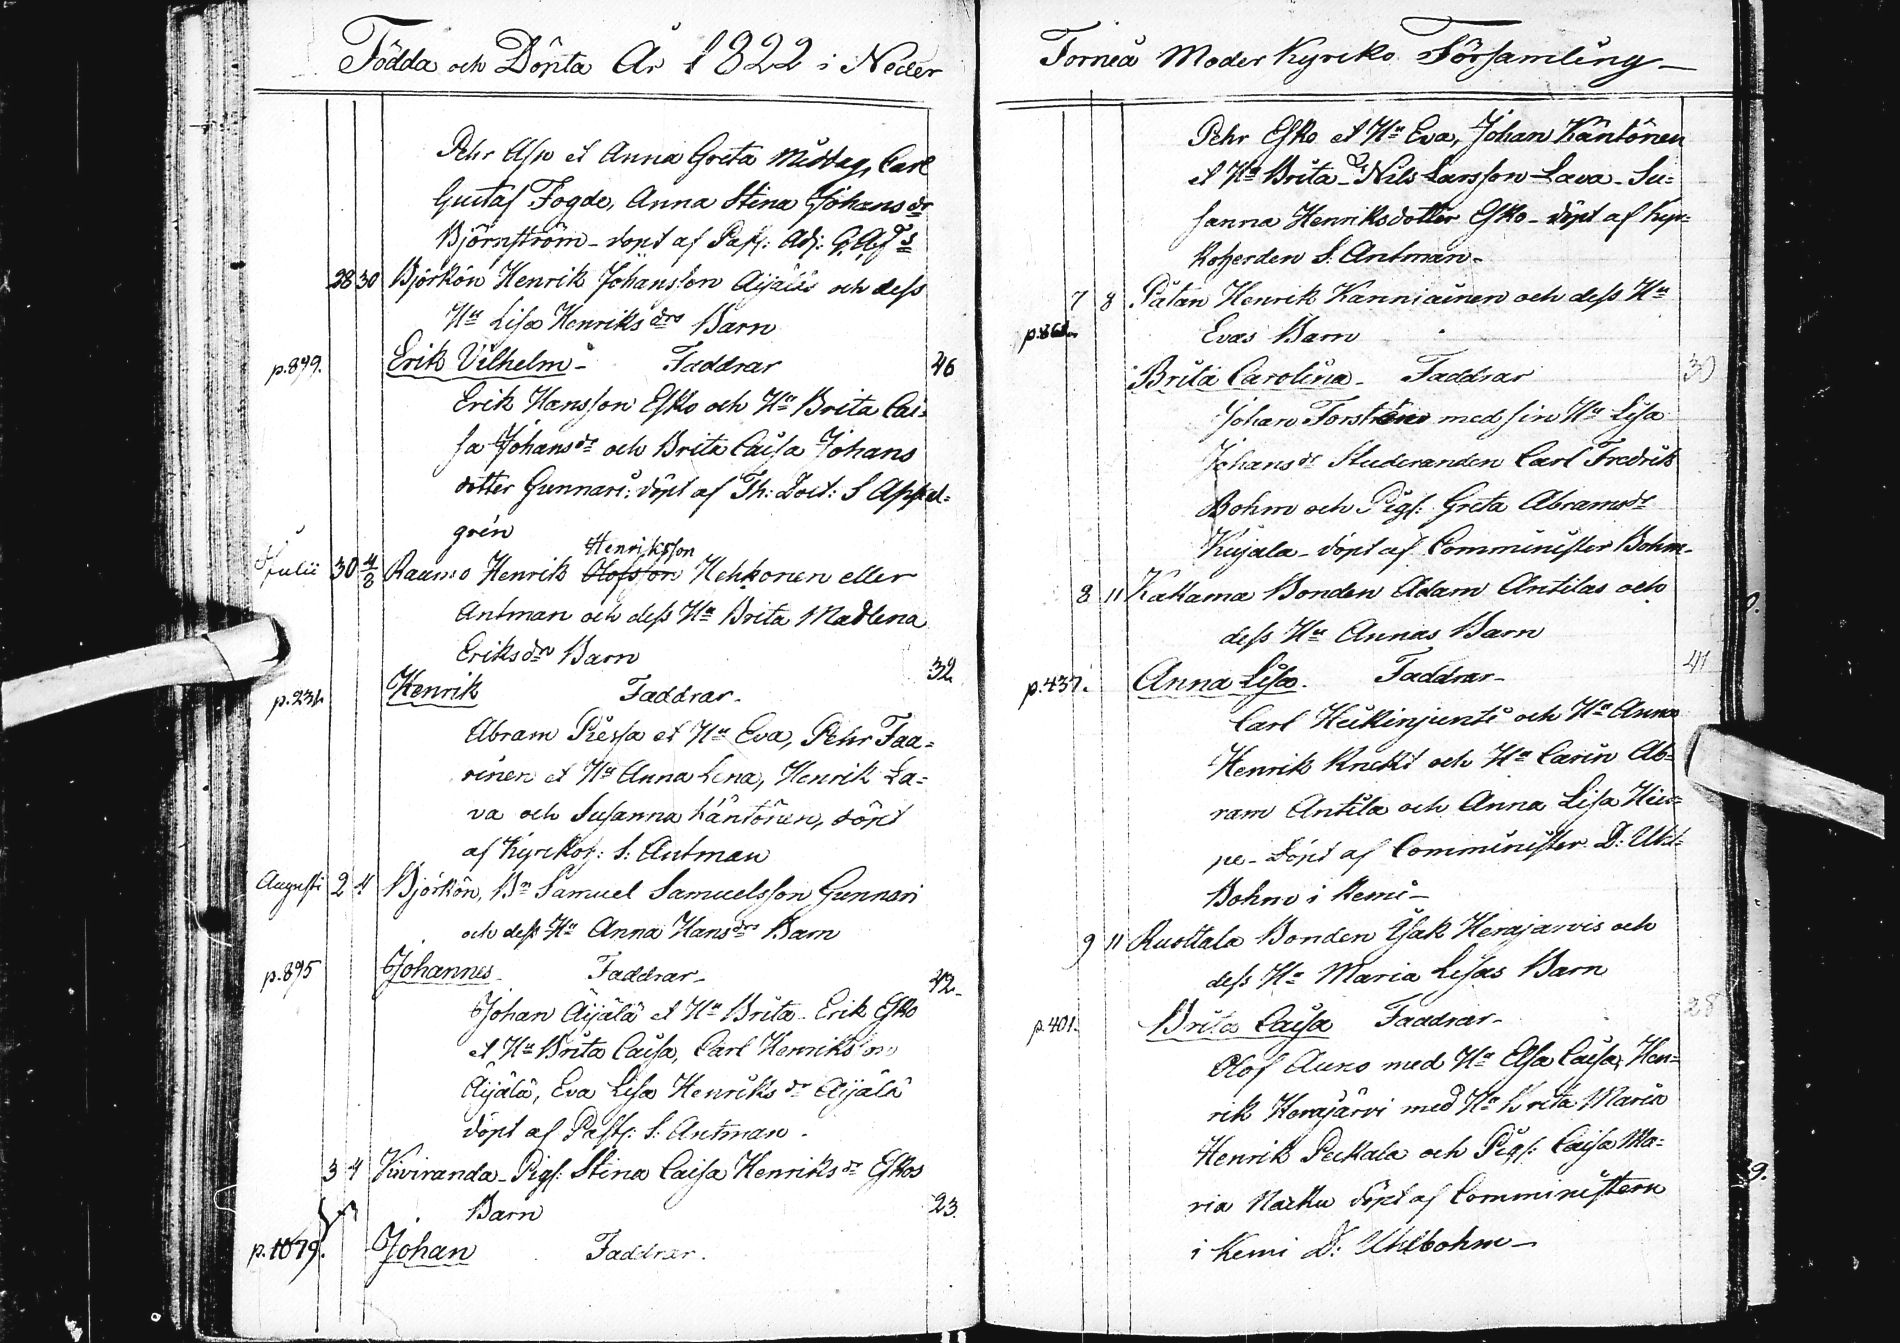 Födda och Döpta År 1822 i Neder
Pehr Asp et Anna Greta Middag, Carl
Gustaf Fogde, Anna Stina Johansdr
Björnström - döpt af Past: Adj:
28 30 Björkön Henrik Johansson Äijälä och dess
Hu Lisa Henriksdrs Barn
p.899. Erik Vilhelm - Faddrar 46
Erik Hansson Esko och Hu Brita Cai=
sa Johansdr och Brita Caisa Johans
dotter Gunnari: döpt af Th: Doct: S Appel=
grén
Henriksson
Julii 30 4/8 Raumo Henrik Olofsson Hehkonen eller
Antman och dess Hu Brita Madlena
Eriksdrs Barn 32
p.234 Henrik Faddrar.
Abram Piessa et Hu Eva, Pehr Taa=
vinen et Hu Anna Lena, Henrik La=
va och Susanna Käntönen, döpt
af Kyrkoh: S: Antman
Augusti 2 4 Björkön, Bn Samuel Samuelsson Gunnari
och dess Hu Anna Hansdrs Barn
p.895 Johannes Faddrar - 42-
Johan Äijälä et Hu Brita - Erik Esko
et Hu Brita Caisa, Carl Henriksson
Äijälä, Eva Lisa Henriksdr Äijälä
döpt af Past: S: Antman.
3 4 Kuviranda - Pigs: Stina Caisa Henriksdr Eskos
Barn 23.
p.1079. Johan Faddrar.
Torneå Moder Kyrko Församling -
Pehr Esko et Hu Eva, Johan Käntönen
et Hu Brita - Nils Larsson Lava - Su=
sanna Henriksdotter Esko - döpt af Kyr=
koherden S. Antman -
7 8 Pätan Henrik Kanniainen och dess Hu
Evas Barn
Brita Carolina - Faddrar 30
Johan Forström med sin Hu Lisa
Johansdr Studeranden Carl Fredrik
Bohm och Pigs: Greta Abramsdr
Kujala - döpt af Comminister Bohm -
8 11 Kakama Bonden Adam Antilas och
dess Hu Annas Barn
p.437. Anna Lisa. Faddrar - 41
Carl Heikinjunti och Hu Anna
Henrik Knekt och Hu Carin Ab=
ram Antila och Anna Lisa
pe - döpt af Comminister D: Uhl=
Bohm i Kemi -
9 11 Ruottala Bonden Isak Herajarvis och
dess Hu Maria Lisas Barn
p.401. Brita Caisa Faddrar - 28
Olof Auno med Hu Elsa Caisa, Hen=
rik Herajärvi med Hu Brita Maria
Henrik Peckala och Pigs: Caisa Ma=
ria döpt af Comministern
i Kemi D: Uhlbohm -